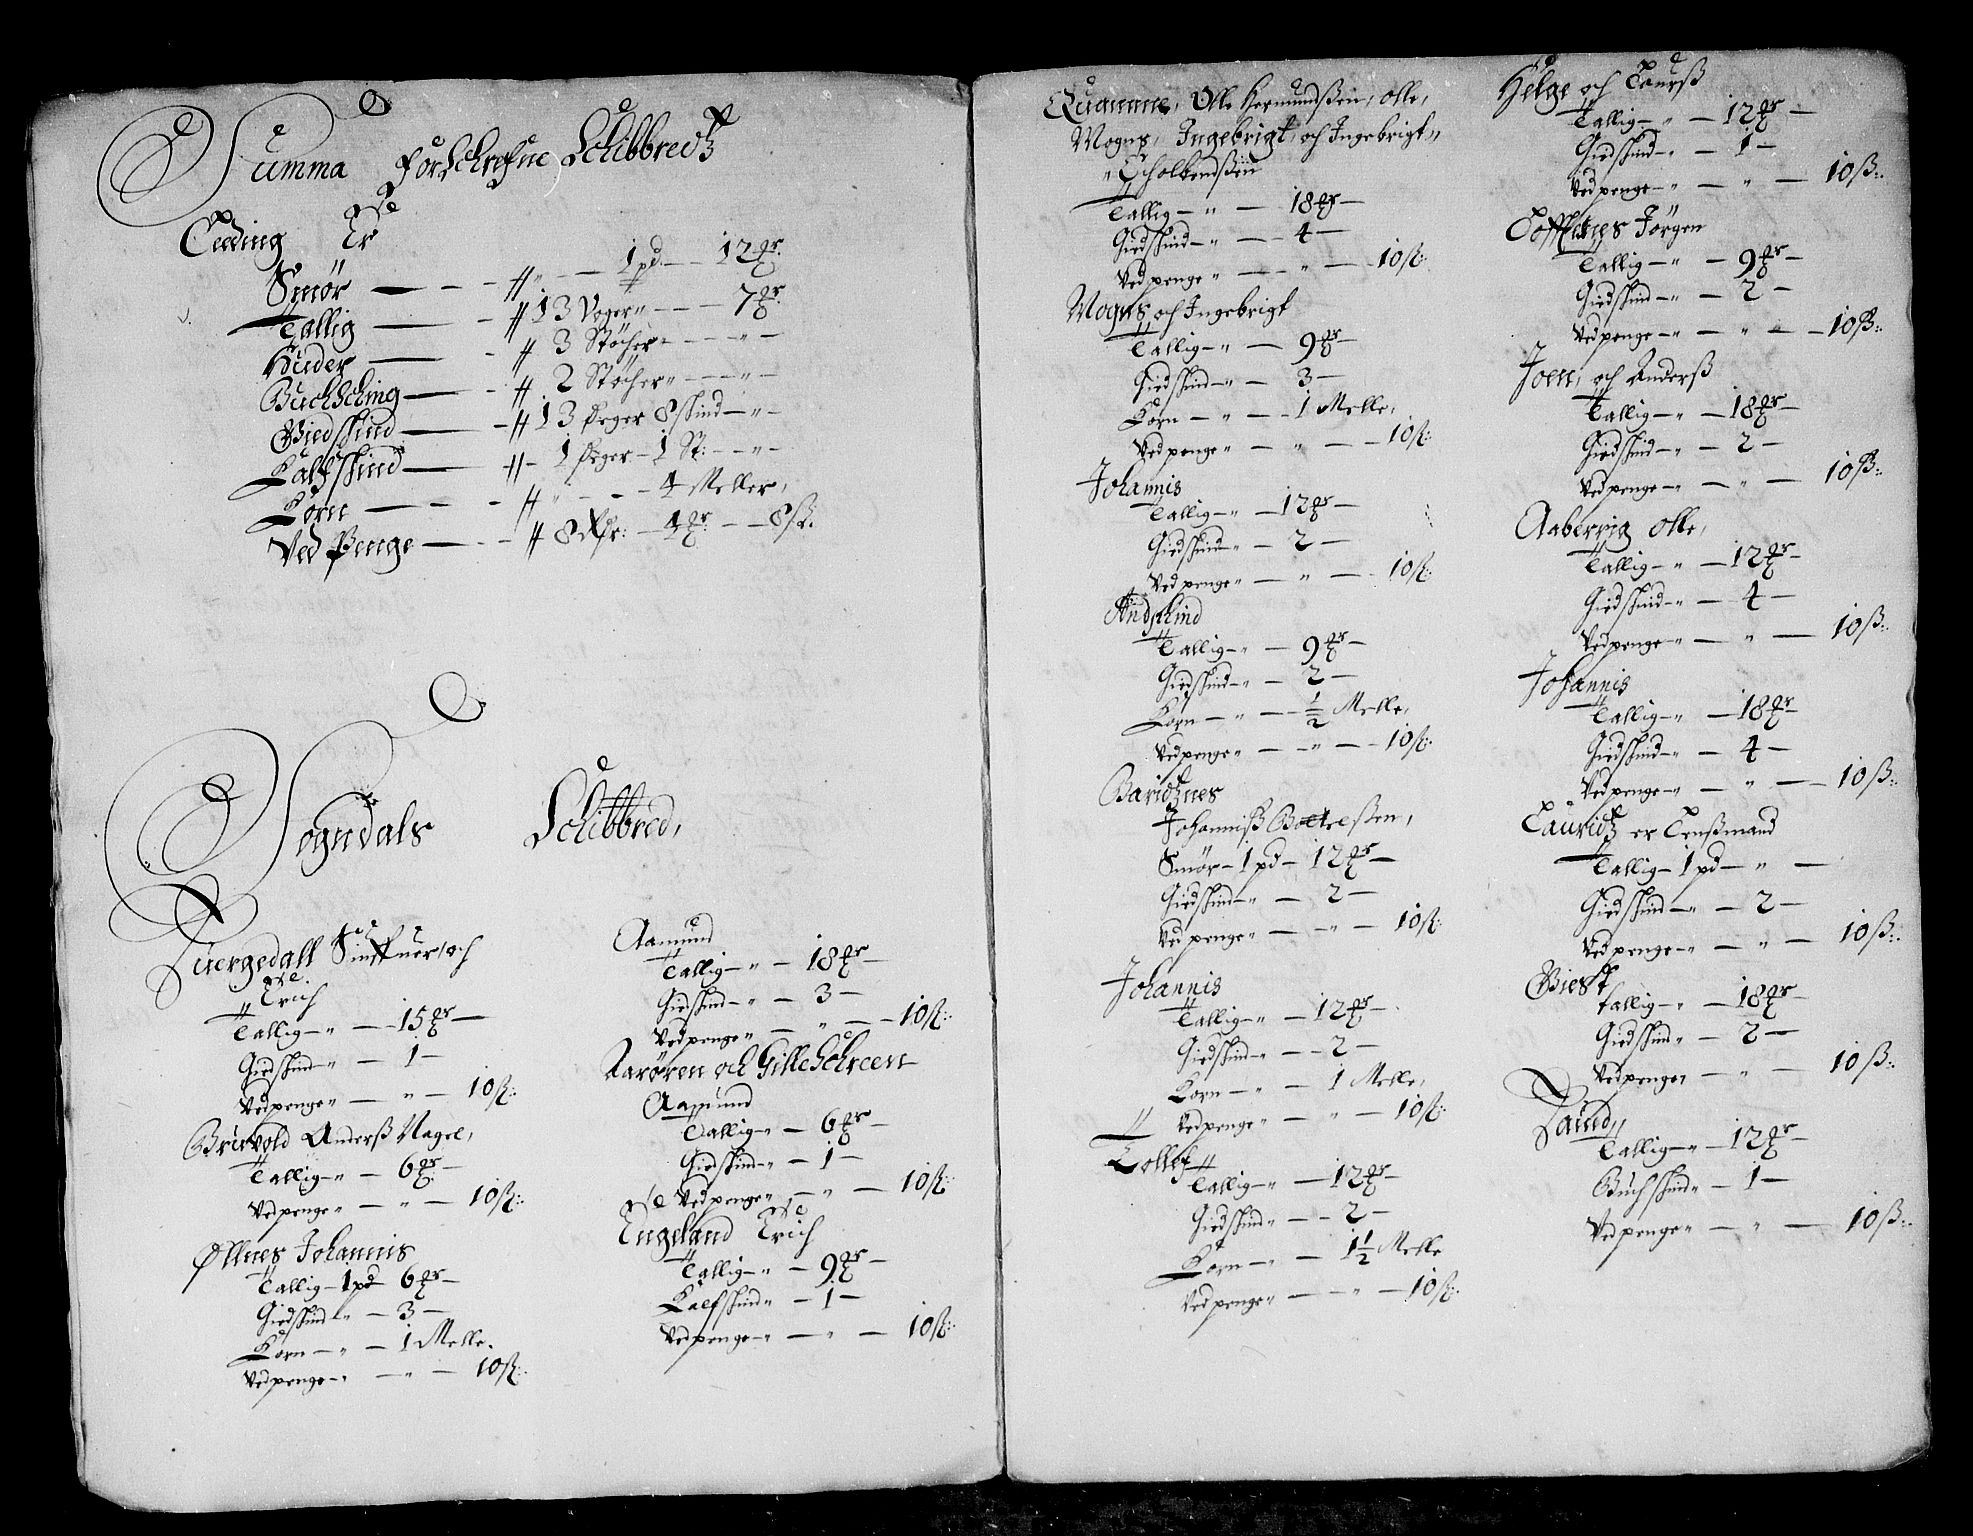 Summa forschrefne Schibbredz
Teding Er
Smør — " — 1 pd — 12 mr
Tallig — 13 Voger " — 7 mr
Huder — 3 Støcher " — " —
Buchsching — 2 Støcher " — " —
Giedskind — 13 Deger 8 skind — " —
Kalfskind — 1 Deger — 1 St: — " —
Korn — " — 4 Meller,
Ved Penge — 8 dlr: — 4 mr — 8 ß.
Sogndals Schibbred,
Duergedall Siuffuer, och
Erich
Tallig — " — 15 mr —
Giedskind — " — 1 —
Vedpenge " — " — 10 ß:
Bruevold Anderß Nagel,
Tallig — " — 6 mr —
Vedpenge " — " — 10 ß:
Øllnes Johannis
Tallig — 1 pd 6 mr —
Giedskind — " — 3 —
Korn — " — 1 Melle.
Vedpenge — " — " — 10 ß:
Aamund
Tallig — " — 18 mr —
Giedskind — " — 3 —
Vedpenge " — " — 10 ß:
Narøren och Gilleschreen
Aamund
Tallig — " — 6 mr —
Giedskind — " — 1 —
Vedpenge " — " — 10 ß:
Engeland Erich
Tallig — " — 9 mr —
Kalfskind " — 1 —
Vedpenge — " — " — 10 ß:
Quamme, Olle Hermundßen, Olle,
Mogns, Ingebrigt, och Ingebrigt "
" Tholkendßen
Tallig — " — 18 mr —
Giedskind — " — 4 —
Vedpenge " — " — 10 ß:
Mogns och Ingebrigt
Tallig — " — 9 mr —
Giedskind — " — 3 —
Korn — " — 1 Melle,
Vedpenge " — " — 10 ß:
Johannis
Tallig — " — 12 mr —
Giedskind — " — 2 —
Vedpenge " — " — 10 ß:
Andskind
Tallig — " — 9 mr —
Giedskind — " — 2 —
Korn — " — ½ Melle,
Vedpenge " — " — 10 ß:
Baridznes
Johanniß Bottelßen,
Smør — 1 pd — 12 mr —
Giedskind — " — 2 —
Vedpenge — " — " — 10 ß:
Johannis
Tallig — " — 12 mr —
Giedskind — " — 2 —
Korn — " — 1 Melle,
Vedpenge " — " — 10 ß:
Lollef
Tallig — " — 12 mr —
Giedskind " — 2 —
Korn — " — 1½ Melle
Vedpenge " — " — 10 ß:
Helge och Laurß
Tallig — " — 12 mr —
Giedskind — " — 1 —
Vedpenge — " — " — 10 ß:
Loftesnes Jørgen
Tallig — " — 9 mr —
Giedskind — " — 2 —
Vedpenge — " — " — 10 ß:
Joen, och Anderß
Tallig — " — 18 mr —
Giedskind — " — 2 —
Vedpenge — " — " — 10 ß:
Aaberrig Olle,
Tallig — " — 12 mr —
Giedskind — " — 4 —
Vedpenge — " — " — 10 ß:
Johannis
Tallig — " — 18 mr
Giedskind — " — 4 —
Vedpenge — " — " — 10 ß:
Lauridz er Lenßmand
Tallig — 1 pd — " —
Giedskind — " — 2 —
Vedpenge — " — " — 10 ß:
Giest
Tallig — " — 18 mr —
Giedskind — " — 2 —
Vedpenge, — " — 10 ß:
Laund,,
Tallig — " — 12 mr —
Buchskind " — 1 —
Vedpenge " — " — 10 ß: